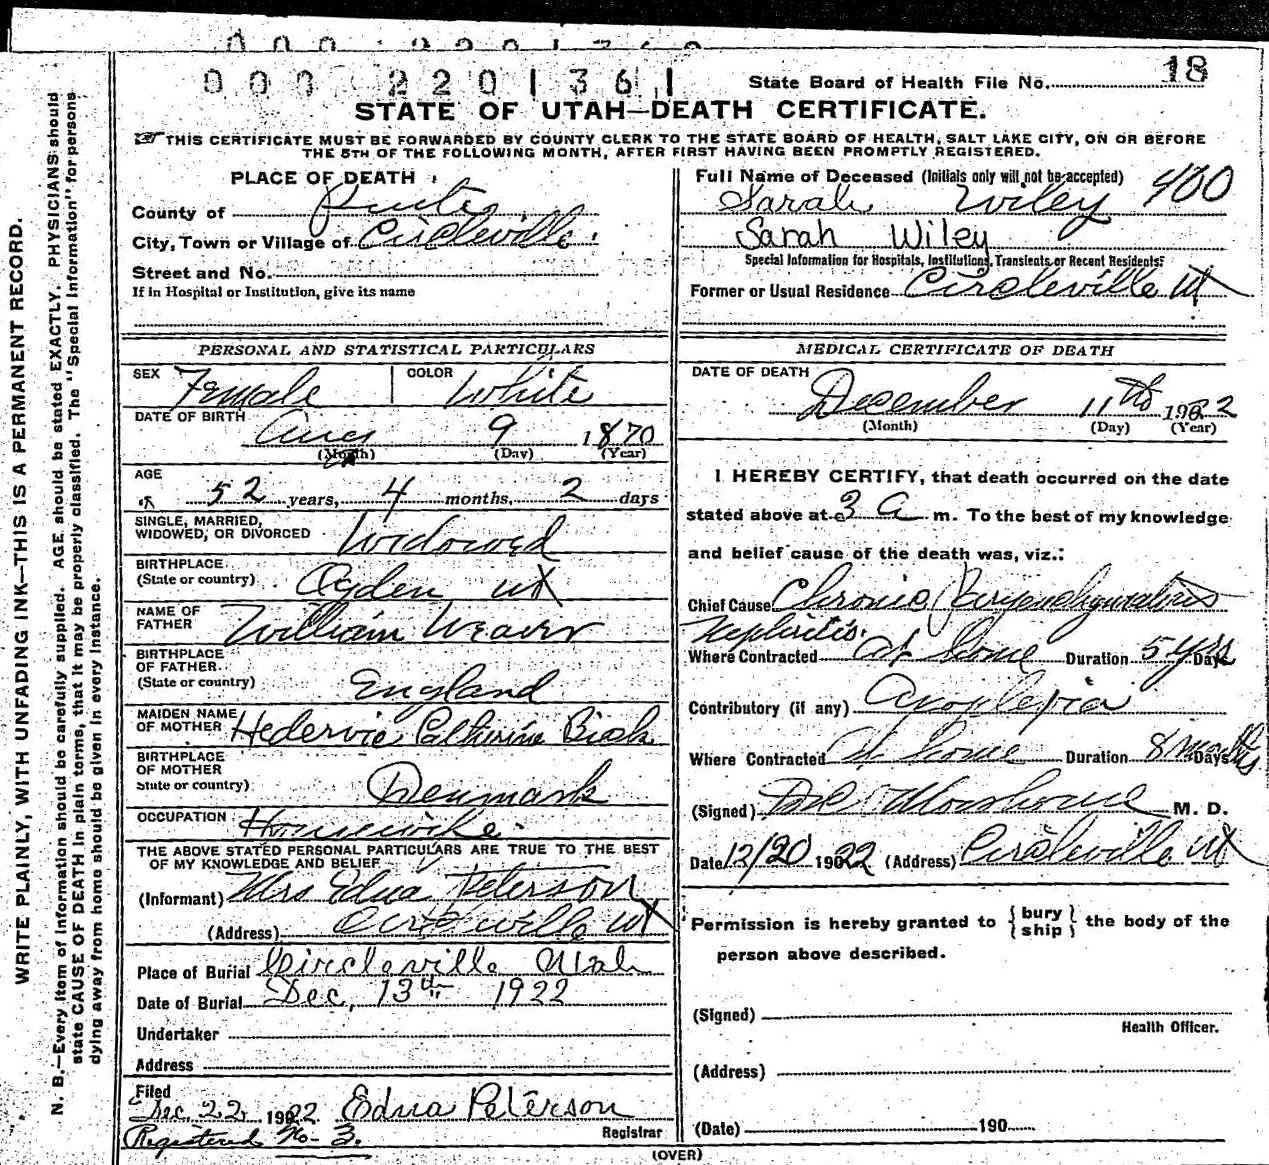 000 2201361
State Board of Health File No. 18
STATE OF UTAH—DEATH CERTIFICATE.
☞ THIS CERTIFICATE MUST BE FORWARDED BY COUNTY CLERK TO THE STATE BOARD OF HEALTH, SALT LAKE CITY, ON OR BEFORE
THE 5TH OF THE FOLLOWING MONTH, AFTER FIRST HAVING BEEN PROMPTLY REGISTERED.
WRITE PLAINLY, WITH UNFADING INK—THIS IS A PERMANENT RECORD.
N. B.—Every item of information should be carefully supplied. AGE should be stated EXACTLY. PHYSICIANS should
state CAUSE OF DEATH in plain terms, that it may be properly classified. The "Special Information" for persons
dying away from home should be given in every instance.
PLACE OF DEATH
County of Piute
City, Town or Village of Circleville
Street and No.
If in Hospital or Institution, give its name
Full Name of Deceased (Initials only will not be accepted) 400
Sarah Wiley
Sarah Wiley
Special Information for Hospitals, Institutions, Transients or Recent Residents:
Former or Usual Residence Circleville Ut
PERSONAL AND STATISTICAL PARTICULARS
SEX Female COLOR White
DATE OF BIRTH Aug 9 1870
(Month) (Day) (Year)
AGE
52 years, 4 months, 2 days
SINGLE, MARRIED,
WIDOWED, OR DIVORCED Widowed
BIRTHPLACE
(State or country) Ogden Ut
NAME OF
FATHER William Weaver
BIRTHPLACE
OF FATHER
(State or country) England
MAIDEN NAME
OF MOTHER Catherine
BIRTHPLACE
OF MOTHER
State or country) Denmark
OCCUPATION Housewife
THE ABOVE STATED PERSONAL PARTICULARS ARE TRUE TO THE BEST
OF MY KNOWLEDGE AND BELIEF
(Informant) Mrs Edna Peterson
(Address) Circleville Ut
Place of Burial Circleville Utah
Date of Burial Dec, 13th 1922
Undertaker
Address
Filed
Dec 22 1922 Edna Peterson
Registered No. 3. Registrar
MEDICAL CERTIFICATE OF DEATH
DATE OF DEATH
December 11th 1922
(Month) (Day) (Year)
I HEREBY CERTIFY, that death occurred on the date
stated above at 3 a m. To the best of my knowledge
and belief cause of the death was, viz.:
Chief Cause Chronic
Nephritis.
Where Contracted At home Duration 5 yrs Days
Contributory (if any) Apoplexia
Where Contracted At home Duration 8 months Days
(Signed) M. D.
Date 12/20 1922 (Address) Circleville Ut
Permission is hereby granted to { bury ship } the body of the
person above described.
(Signed)
Health Officer.
(Address)
(Date) 190
(OVER)